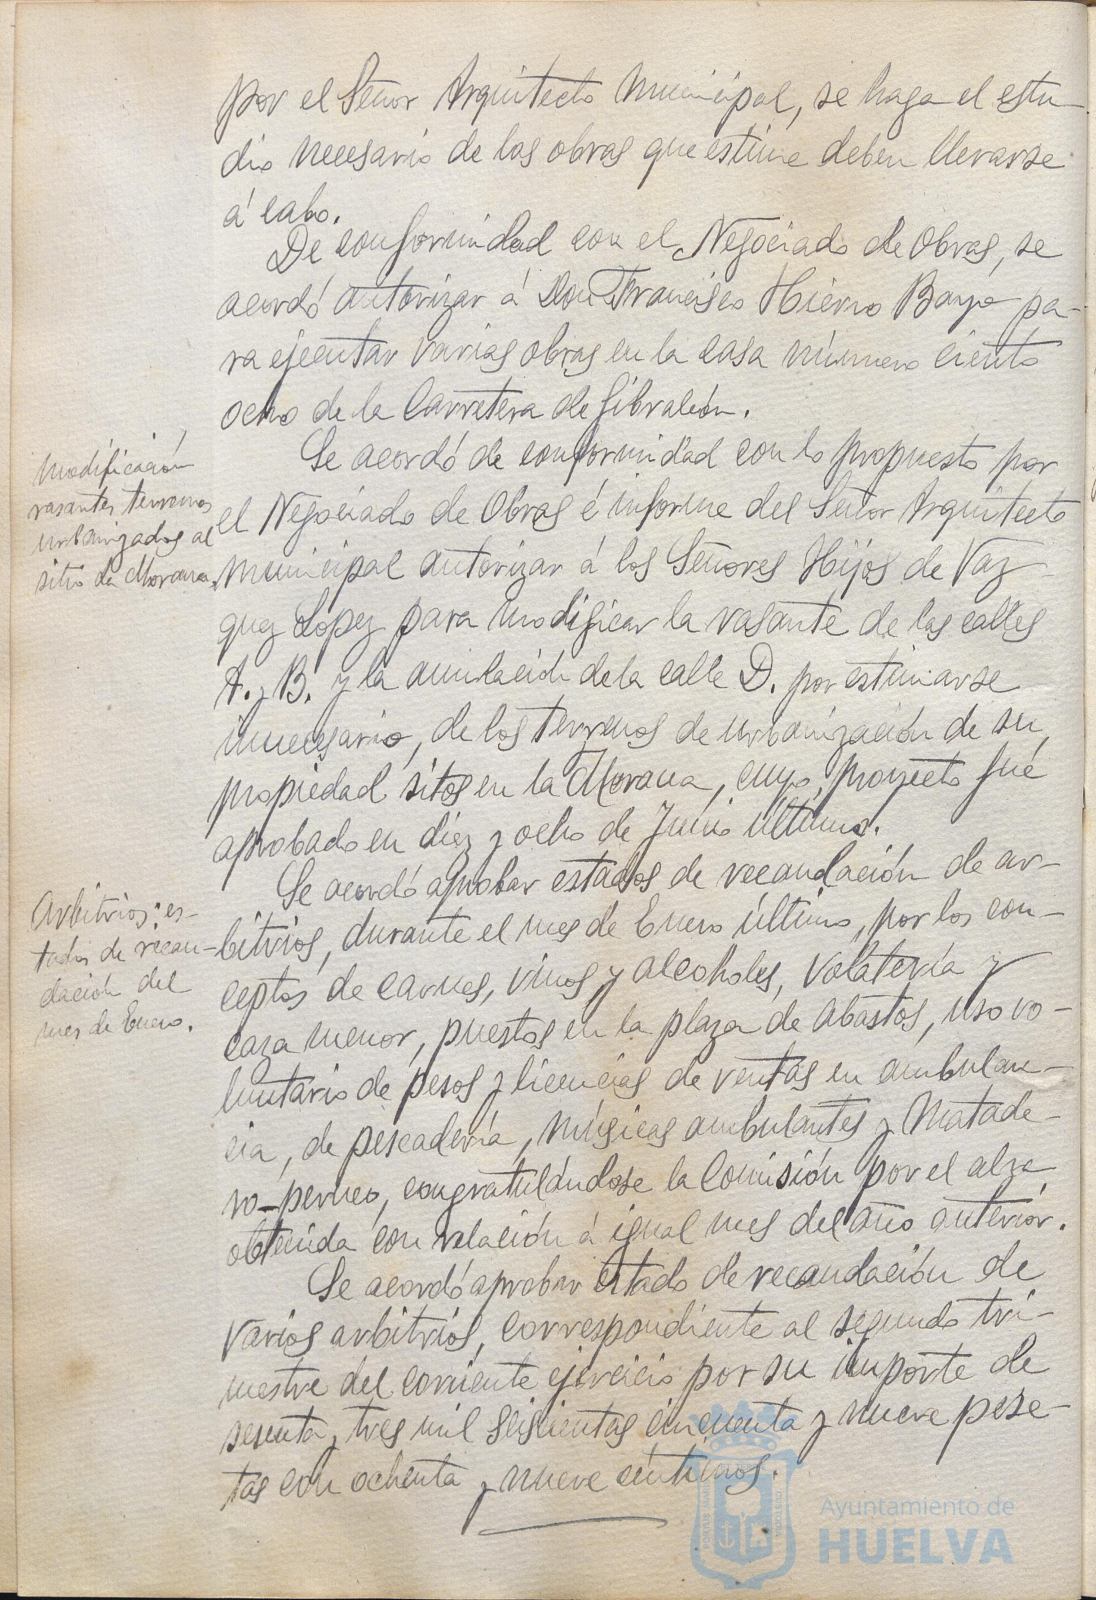 por el Señor Arquitecto Municipal, se haga el estu-
dio necesario de las obras que estime deben llevarse
á cabo.
De conformidad con el Negociado de Obras, se
acordó autorizar á Don Francisco Hierro Bayo pa-
ra ejecutar varias obras en la casa número ciento
ocho de la Carretera de Gibraleón.
modificación
rasantes terrenos
urbanizados al
sitio La Morana.
Se acordó de conformidad con lo propuesto por
el Negociado de Obras é informe del Señor Arquitecto
Municipal autorizar á los Señores Hijos de Vaz-
quez López para modificar la rasante de las calles
A. y B. y la anulación de la calle D. por estimarse
innecesario, de los terrenos de urbanización de su
propiedad sitos en la Morana, cuyo proyecto fué
aprobado en diez y ocho de Junio último.
Arbitrios: es-
tados de recau-
dación del
mes de Enero.
Se acordó aprobar estados de recaudación de ar-
bitrios, durante el mes de Enero último, por los con-
ceptos de carnes, vinos y alcoholes, volatería y
caza menor, puestos en la plaza de Abastos, uso vo-
luntario de pesos y licencias de ventas en ambulan-
cia, de pescadería, músicas ambulantes y Matade-
ro-perneo, congratulándose la Comisión por el alza
obtenida con relación á igual mes del año anterior.
Se acordó aprobar estado de recaudación de
varios arbitrios, correspondiente al segundo tri-
mestre del corriente ejercicio por su importe de
sesenta y tres mil seiscientas cincuenta y nueve pese-
tas con ochenta y nueve céntimos.
Ayuntamiento de
HUELVA